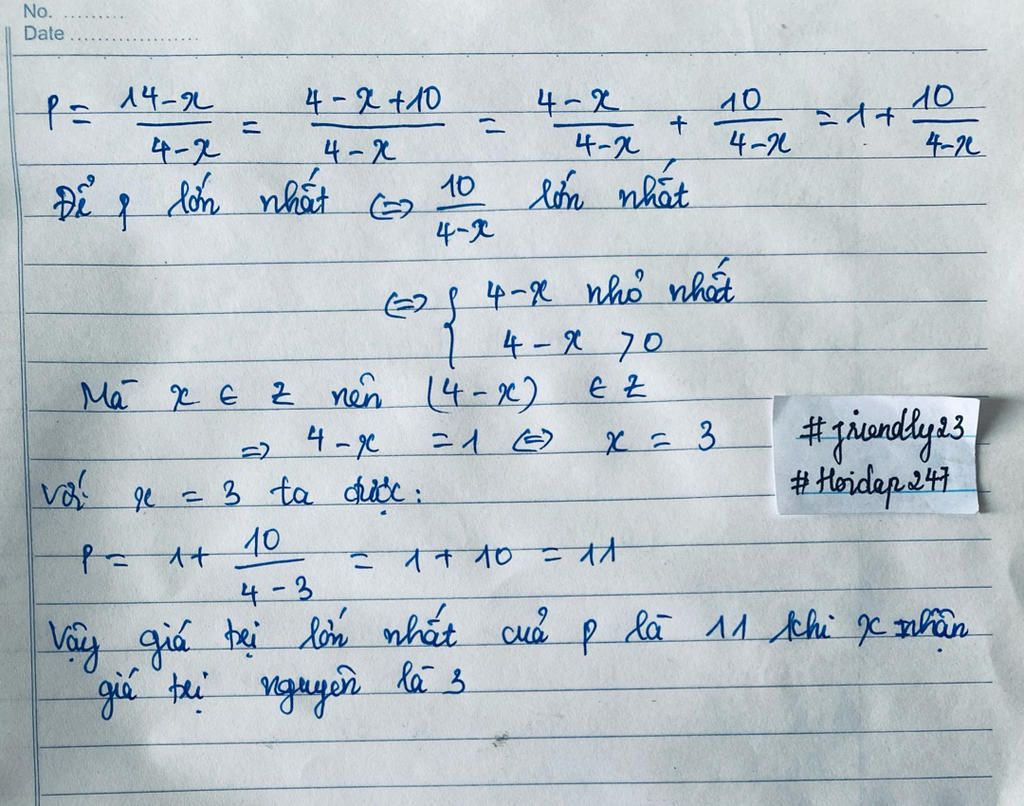 No. .........
Date ...................
P = 14-x / 4-x = 4-x+10 / 4-x = 4-x / 4-x + 10 / 4-x = 1 + 10 / 4-x
Để P lớn nhất ⇔ 10 / 4-x lớn nhất
⇔ { 4-x nhỏ nhất
4-x > 0
Mà x ∈ Z nên (4-x) ∈ Z
⇒ 4-x = 1 ⇔ x = 3
#friendly23
#Hoidap247
Với x = 3 ta được:
P = 1 + 10 / 4-3 = 1 + 10 = 11
Vậy giá trị lớn nhất cuả P là 11 khi x nhận
giá trị nguyên là 3